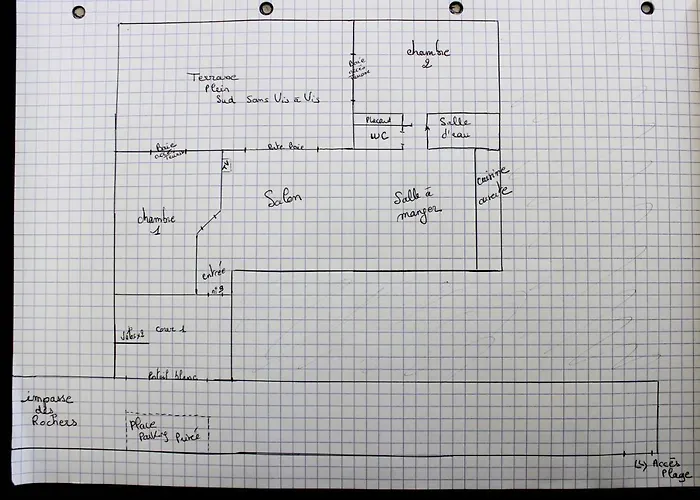 chambre
2
Terrasse
Plein
Sud Sans Vis à Vis
Baie
accès
Placard
WC
Salle
d'eau
Baie
accès
Petite Baie
cuisine
ouverte
Salon
Salle à
manger
chambre
1
entrée
n°9
cour 1
Portail blanc
impasse
des
Rochers
Place
Parking Privée
Accès
Plage